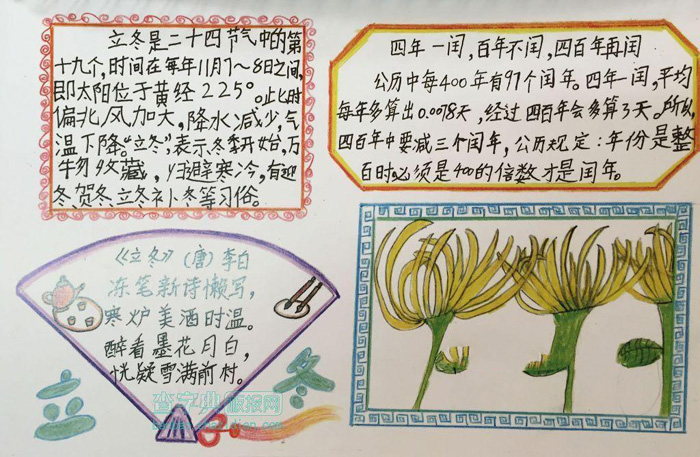 立冬是二十四节气中的第
十九个,时间在每年11月7～8日之间,
即太阳位于黄经225°。此时
偏北风加大,降水减少,气
温下降。“立冬”,表示冬季开始,万
物收藏,归避寒冷,有迎
冬、贺冬、立冬补冬等习俗。
四年一闰,百年不闰,四百年再闰
公历中每400年有97个闰年。四年一闰,平均
每年多算出0.0078天,经过四百年会多算了天。所以
四百年中要减三个闰年,公历规定:年份是整
百时必须是400的倍数才是闰年。
《立冬》(唐)李白
冻笔新诗懒写,
寒炉美酒时温。
醉看墨花月白,
恍疑雪满前村。
立冬
查字典 板报网